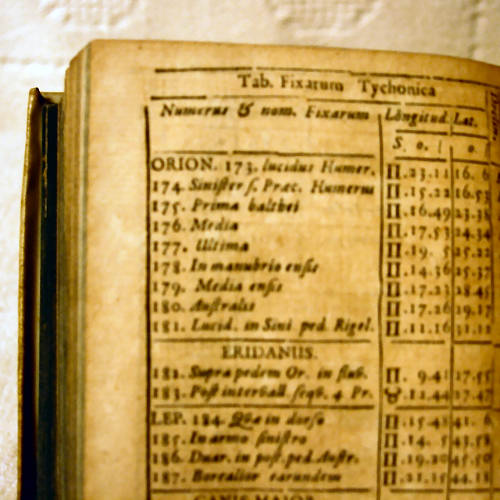 Tab. Fixarum Tychonica
Numerus & nom. Fixarum Longitud Lat.
S. o. | o.
ORION. 173. lucidus Humer. II. 23.11 16. 6
174. Siniſter ſ. Præc. Humerus II. 15.22 16.53
175. Prima baltbei II. 16.49 23.38
176. Media II. 17.53 24.34
177. Ultima II. 19. 5 25.22
178. In manubrio enſis II. 14.36 25.37
179. Media enſis II. 17.23 28.45
180. Auſtralis II. 17.26 29.17
181. Lucid. in Sini ped. Rigel. II. 11.16 31.11
ERIDANUS.
182. Supra pedem Or. in flub. II. 9.41 27.55
183. Poſt interball. ſeqb. 4. Pr. ♉. 11.44 27.47
LEP. 184. Quæ in dorſo II. 15.48 41. 6
185. In armo ſiniſtro II. 14. 5 43.58
186. Duar. in poſt. ped. Auſtr. II. 19.20 45.50
187. Borealior earundem II.
CANIS MAIOR